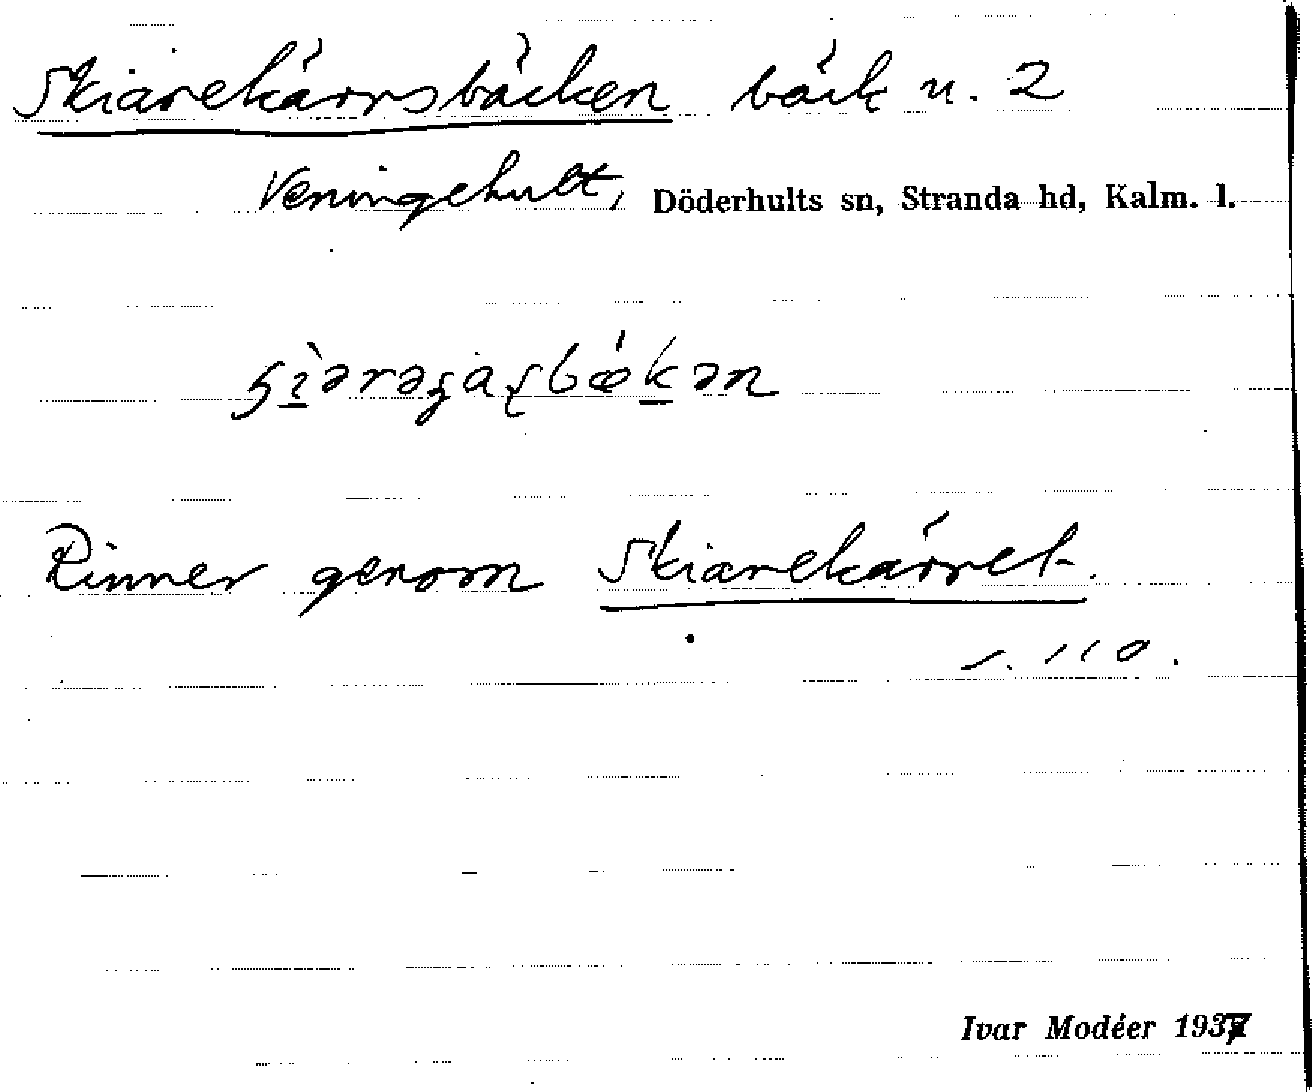 Skiarekärrsbäcken bäck u. 2
Veningehult, Döderhults sn, Stranda hd, Kalm. l.
Rinner genom Skiarekärret.
s. 110.
Ivar Modéer 1937